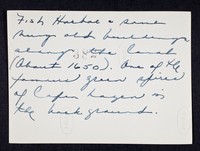 Fish Harbor & some
many old buildings
along the Canal
(About 1650). One of the
famous green spires
of Copenhagen in
the background.